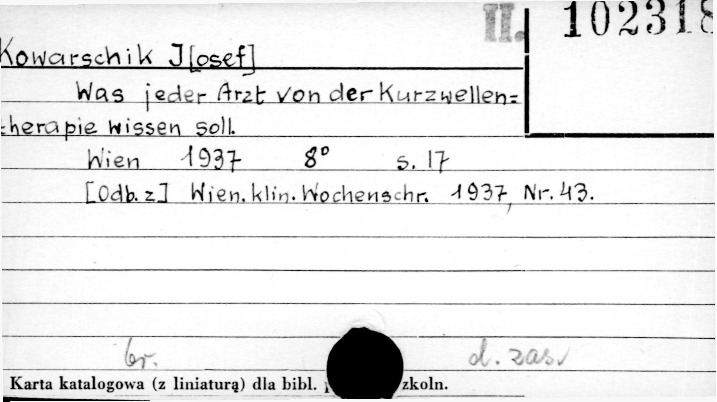 II. 102318
Kowarschik J[osef]
Was jeder Arzt von der Kurzwellen=
therapie wissen soll.
Wien 1937 8° s. 17
[Odb. z] Wien. klin. Wochenschr. 1937, Nr. 43.
br. d. zas.
Karta katalogowa (z liniaturą) dla bibl. zkoln.